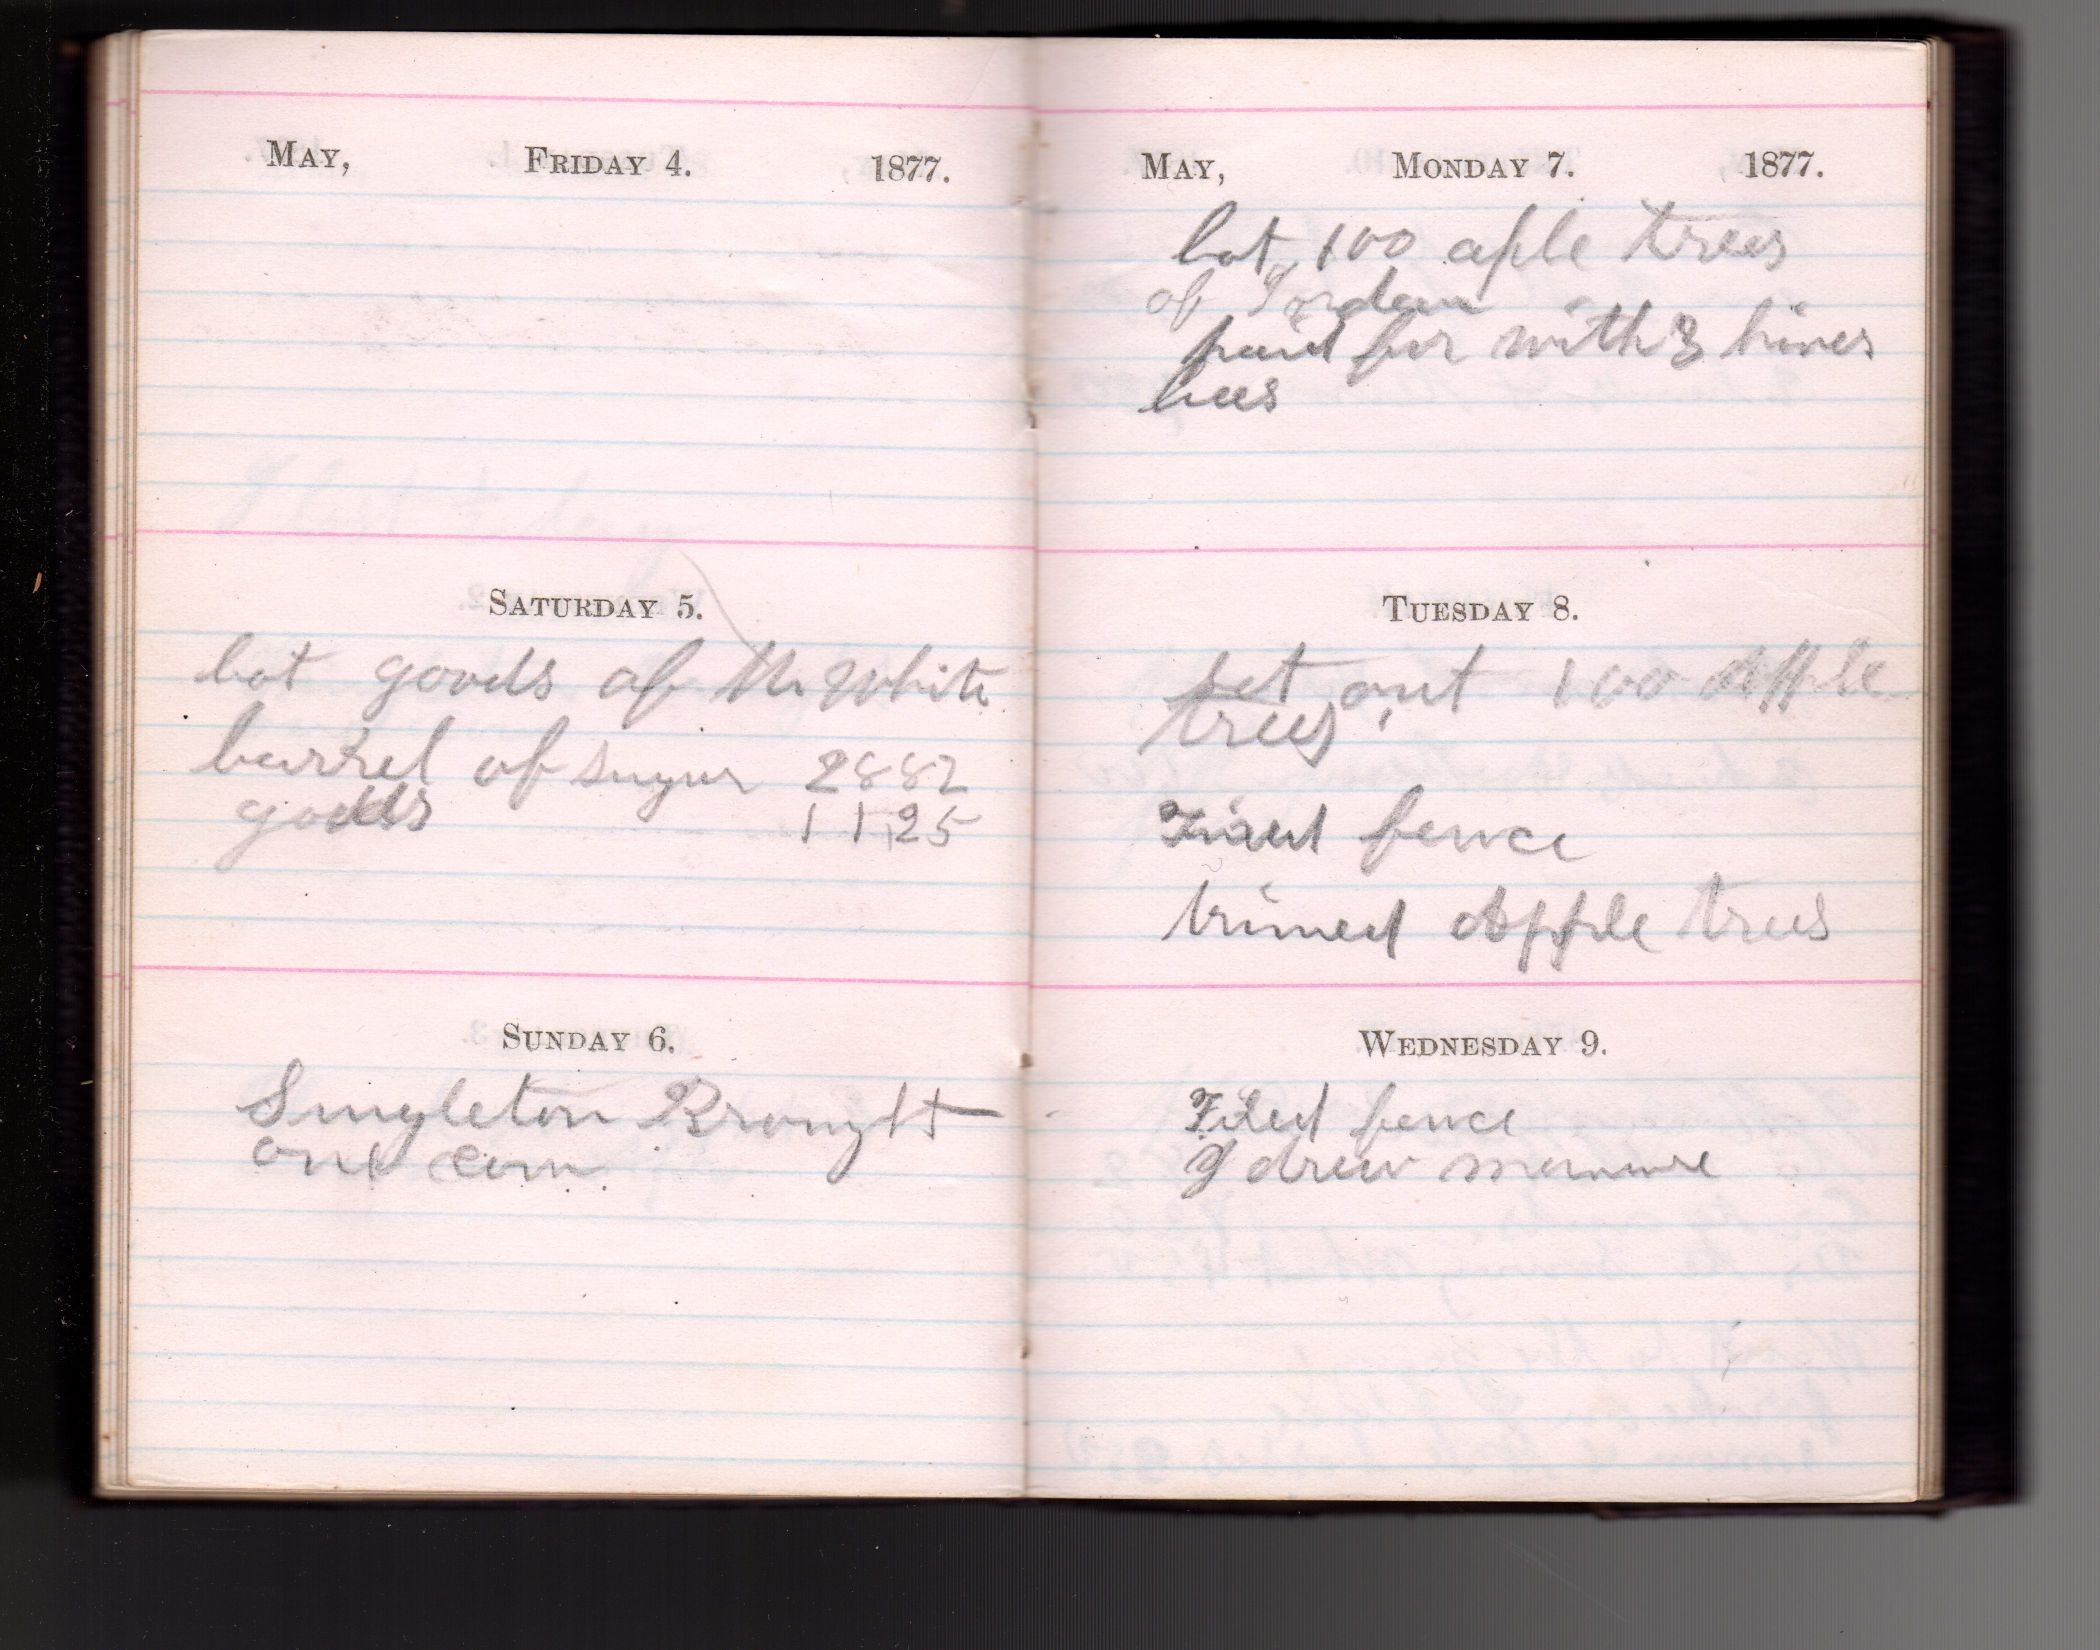 MAY, FRIDAY 4. 1877.
SATURDAY 5.
bot goods of M White
barrel of sugar 2882
goods 1125
SUNDAY 6.
Singleton Brought
one cow
MAY, MONDAY 7. 1877.
bot 100 aple trees
of Jordan
paid for with 3 hives
bees
TUESDAY 8.
set out 100 apple
trees
Fixed fence
trimed Apple trees
WEDNESDAY 9.
Fixed fence
I drew manure